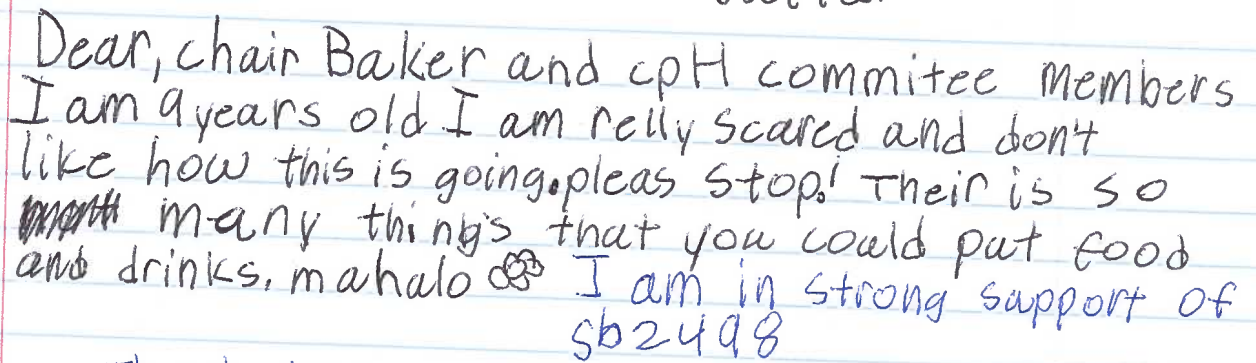 Dear, chair Baker and cpH commitee members
I am 9 years old I am relly scared and don't
like how this is going.pleas stop! Their is so
many things that you could put food
and drinks. mahalo I am in strong support of
sb2498